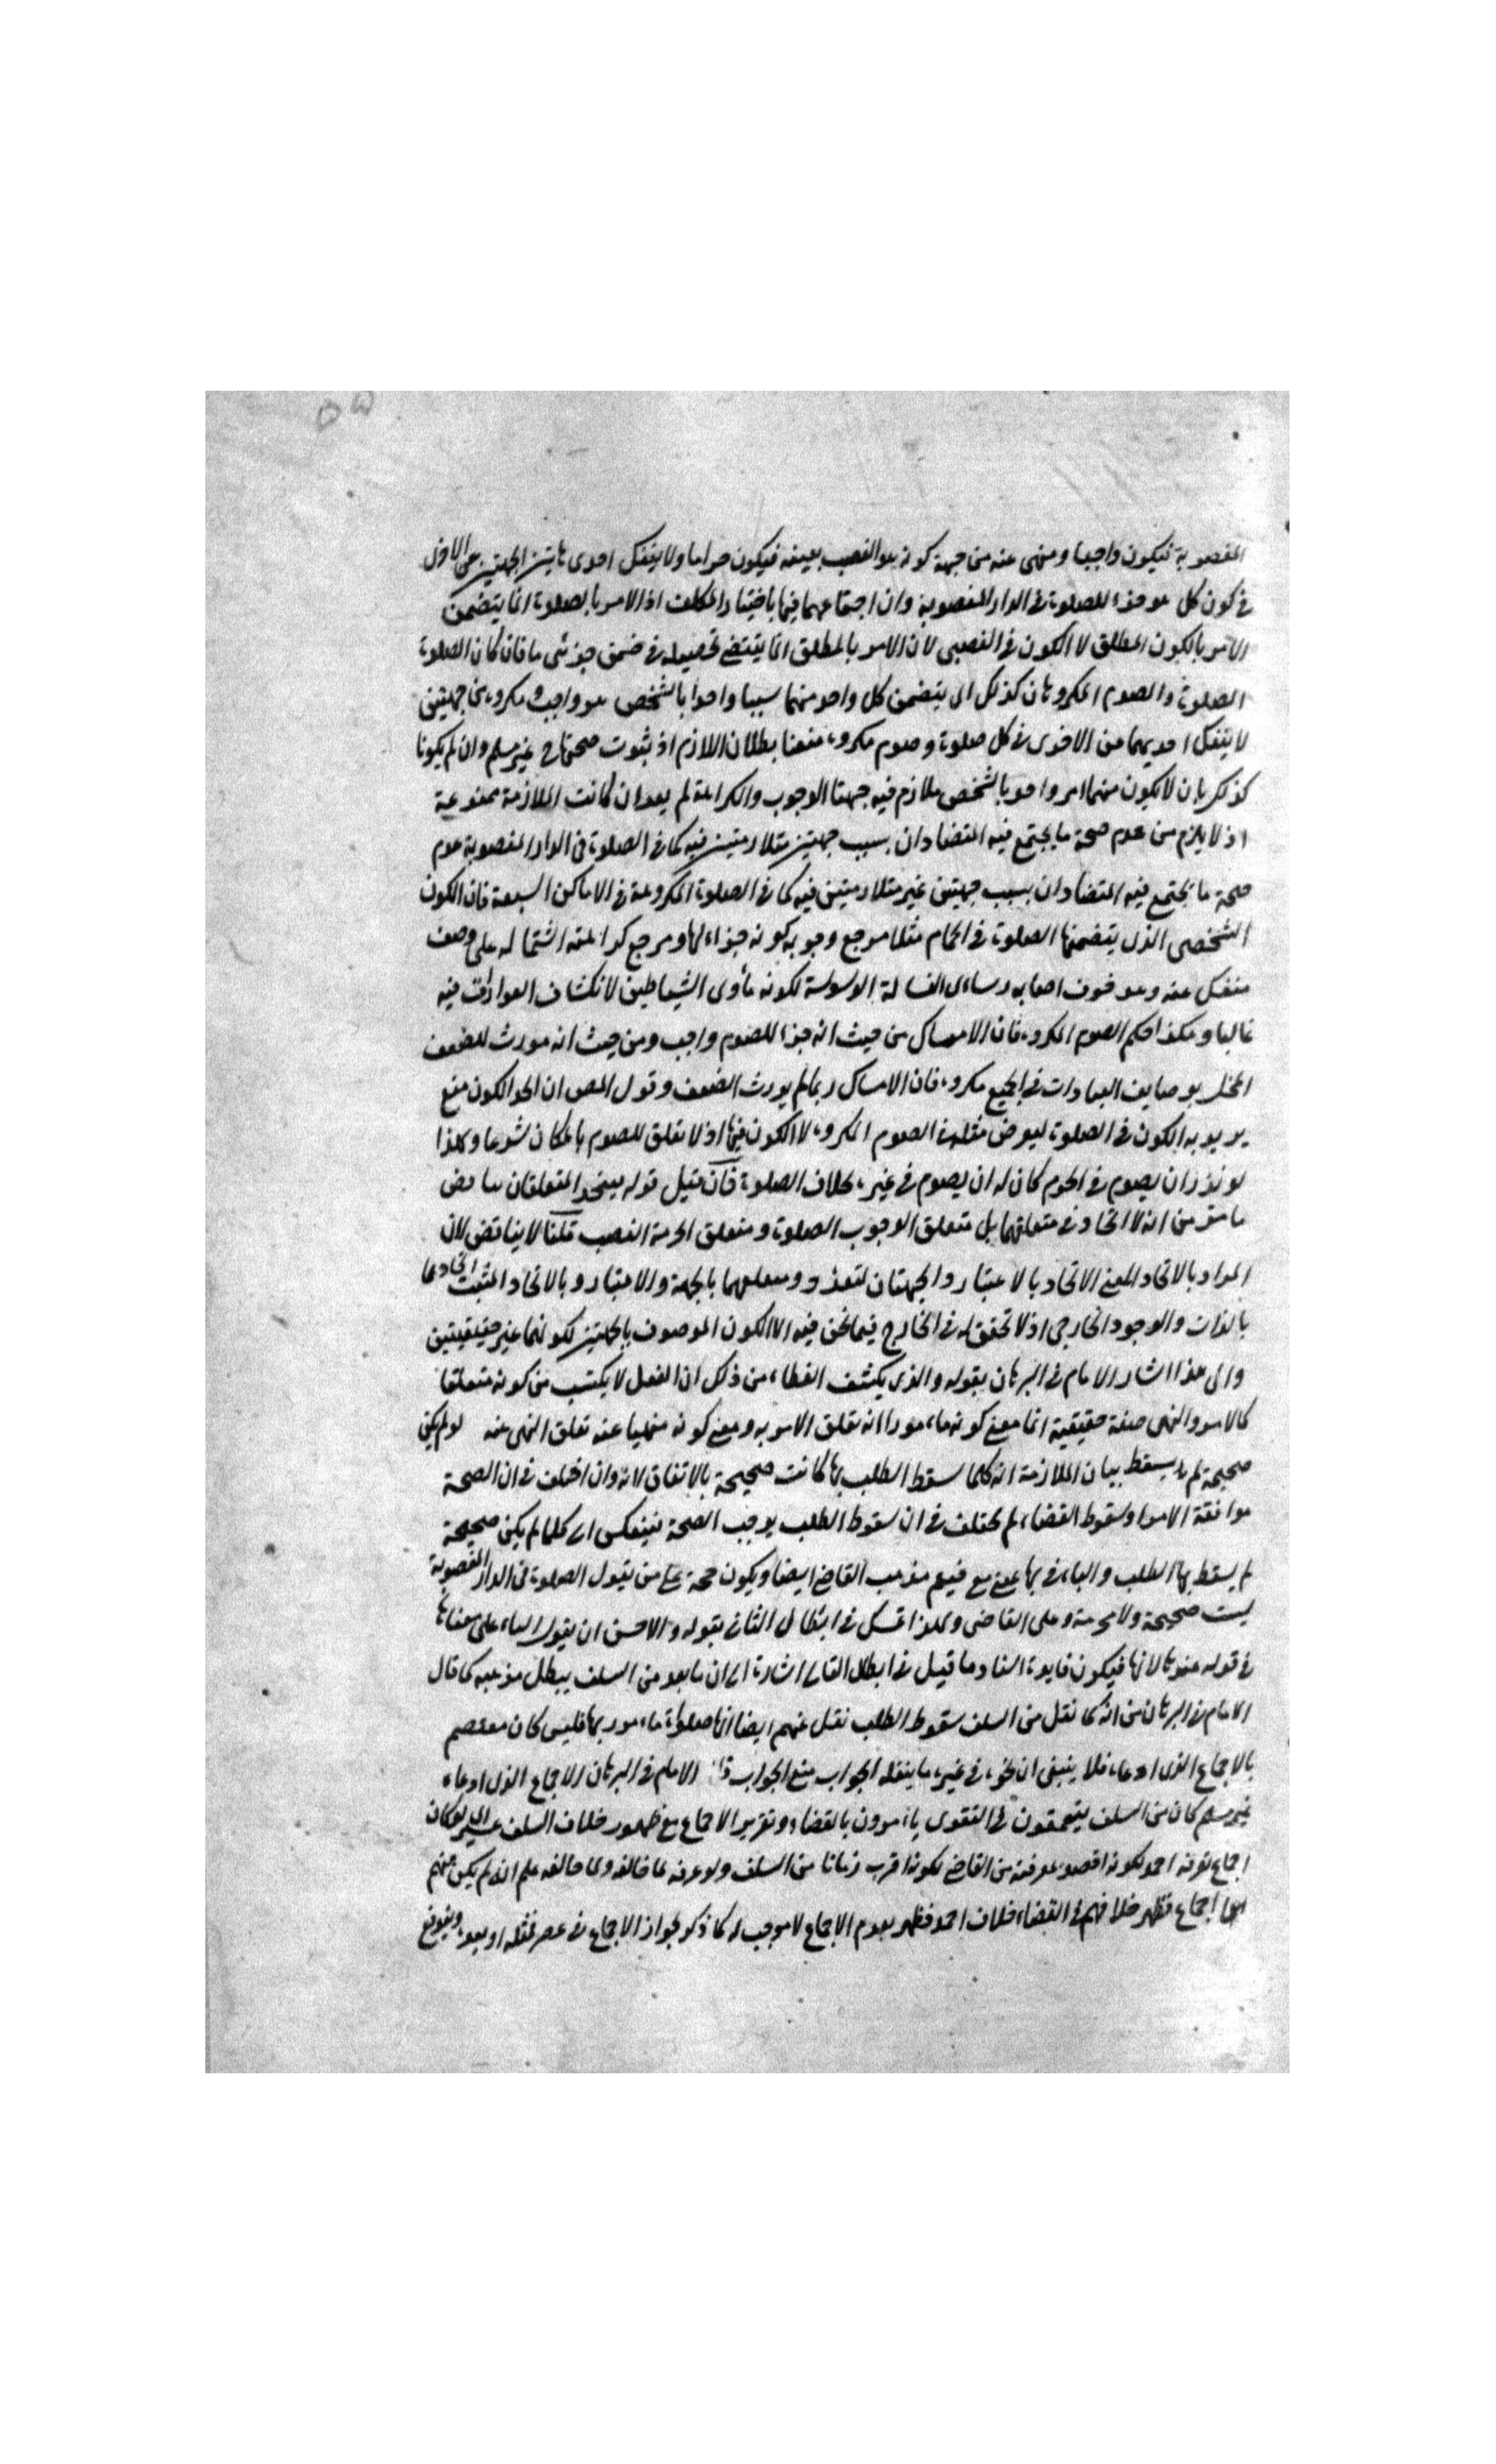 المغصوبة فيكون واجبا ومنهى عنه من جهة كونه هو الغصب بعينه فيكون حراما ولا ينفك احدى هاتين الجهتين عن الاخرى
فى كون كل هو جزء للصلوة فى الدار المغصوبة وان اجتماعهما فيها باختيار المكلف اذ الامر بالصلوة انما يتضمن
الامر بالكون المطلق لا الكون فى الغصبى لان الامر بالمطلق انما يقتضى تحصيله فى ضمن جزئى ما فان كان الصلوة
الصلوة والصوم المكروهان كذلك اى يتضمن كل واحد منهما سببا واحدا بالشخص هو واجب ومكروه من جهتين
لا ينفك احديهما من الاخرى فى كل صلوة وصوم مكروه منعنا بطلان اللازم اذ ثبوت صحتها ح غير مسلم وان لم يكونا
كذلك بان لا يكون منهما امر واحد بالشخص ملازم فيه جهتا الوجوب والكراهة لم يعد ان كانت الملازمة ممنوعة
اذ لا يلزم من عدم صحة ما يجتمع فيه المتضادان بسبب جهتين متلازمتين فيه كما فى الصلوة فى الدار المغصوبة عدم
صحة ما يجتمع فيه المتضادان بسبب جهتين غير متلازمتين فيه كما فى الصلوة المكروهة فى الاماكن السبعة فان الكون
الشخصى الذى يتضمنها الصلوة فى الحمام مثلا مرجع وجوبه كونه جزءا لها ومرجع كراهته اشتماله على وصف
منفك عنه وهو خوف اصابه رساس الغسالة الوسوسة لكونه مأوى الشياطين لانكشاف العوارت فيه
غالبا وهكذا حكم الصوم المكروه فان الامساك من حيث انه جزء للصوم واجب ومن حيث انه مورث للضعف
المخل بوصايف العبادات فى الجميع مكروه فان الامساك ربما لم يورث الضعف وقول المص ان اتحد الكون منع
يريد به الكون فى الصلوة ليعوض مثله فى الصوم المكروه لا الكون فيها اذ لا تعلق للصوم بالمكان شرعا ولهذا
لو نذر ان يصوم فى الحرم كان له ان يصوم فى غيره بخلاف الصلوة فان قيل قوله فيتحد المتعلقان يناقض
ما مر من انه لا اتحاد فى متعلقهما بل متعلق الوجوب الصلوة ومتعلق الحرمة الغصب قلنا لا يناقض لان
المراد بالاتحاد المعنى الاتحاد بالاعتبار والجهتان لتعدد ومتعلقهما بالجهة والاعتبار وبالاتحاد المثبت اتحادهما
بالذات والوجود الخارجى اذ لا تحقق له فى الخارج فيما نحن فيه الا الكون الموصوف بالجهتين لكونهما غير حقيقيتين
والى هذا اشار الامام فى البرهان بقوله والذى يكشف الغطاء من ذلك ان الفعل لا يكتسب من كونه متعلقا
كالامر والنهى صفة حقيقية انما معنى كونه مامورا انه تعلق الامر به ومعنى كونه منهيا عنه تعلق النهى عنه لو لم يكن
صحيحة لم يسقط بيان الملازمة انه كلما سقط الطلب بها كانت صحيحة بالاتفاق لانه وان اختلف فى ان الصحة
موافقة الامر او سقوط القضاء لم يختلف فى ان سقوط الطلب يوجب الصحة فينعكس اى كلما لم يكن صحيحة
لم يسقط بها الطلب والباء فى بها بمعنى مع فيعم مذهب القاضى ايضا ويكون حجة على من يقول الصلوة فى الدار المغصوبة
ليست صحيحة ولا محرمة وعلى القاضى ولهذا تمسك فى ابطال الثانى بقوله والاحسن ان يقول الباء على معناها
فى قوله عندها لا بها فيكون فايدة اسناد ما قيل فى ابطال القاضى اشارة الى ان ما بعد من السلف يبطل مذهبه كما قال
الامام فى البرهان من انه كما نقل من السلف سقوط الطلب نقل عنهم ايضا انها صلوة مامور بها فليس كان معتصم
بالاجماع الذى ادعاه فلا ينبغى ان فى غير ما ينقله الجواب منع الجواب الامام فى البرهان الاجماع الذى ادعاه
غير مسلم كان من السلف يتعمقون فى التقوى يامرون بالقضاء وتقرير الاجماع مع ظهور خلاف السلف عسير اى لو كان
اجماع لعرفه احمد لكونه اقصد بمعرفته من القاضى لكونه اقرب زمانا من السلف ولو عرفه لما خالفه ولما خالفه علم انه لم يكن منهم
اجماع فظهر خلافهم فى القضاء خلاف احمد فظهر بعدم الاجماع لا موجب له كما ذكر لجواز الاجماع فى عصر مثله او بعده